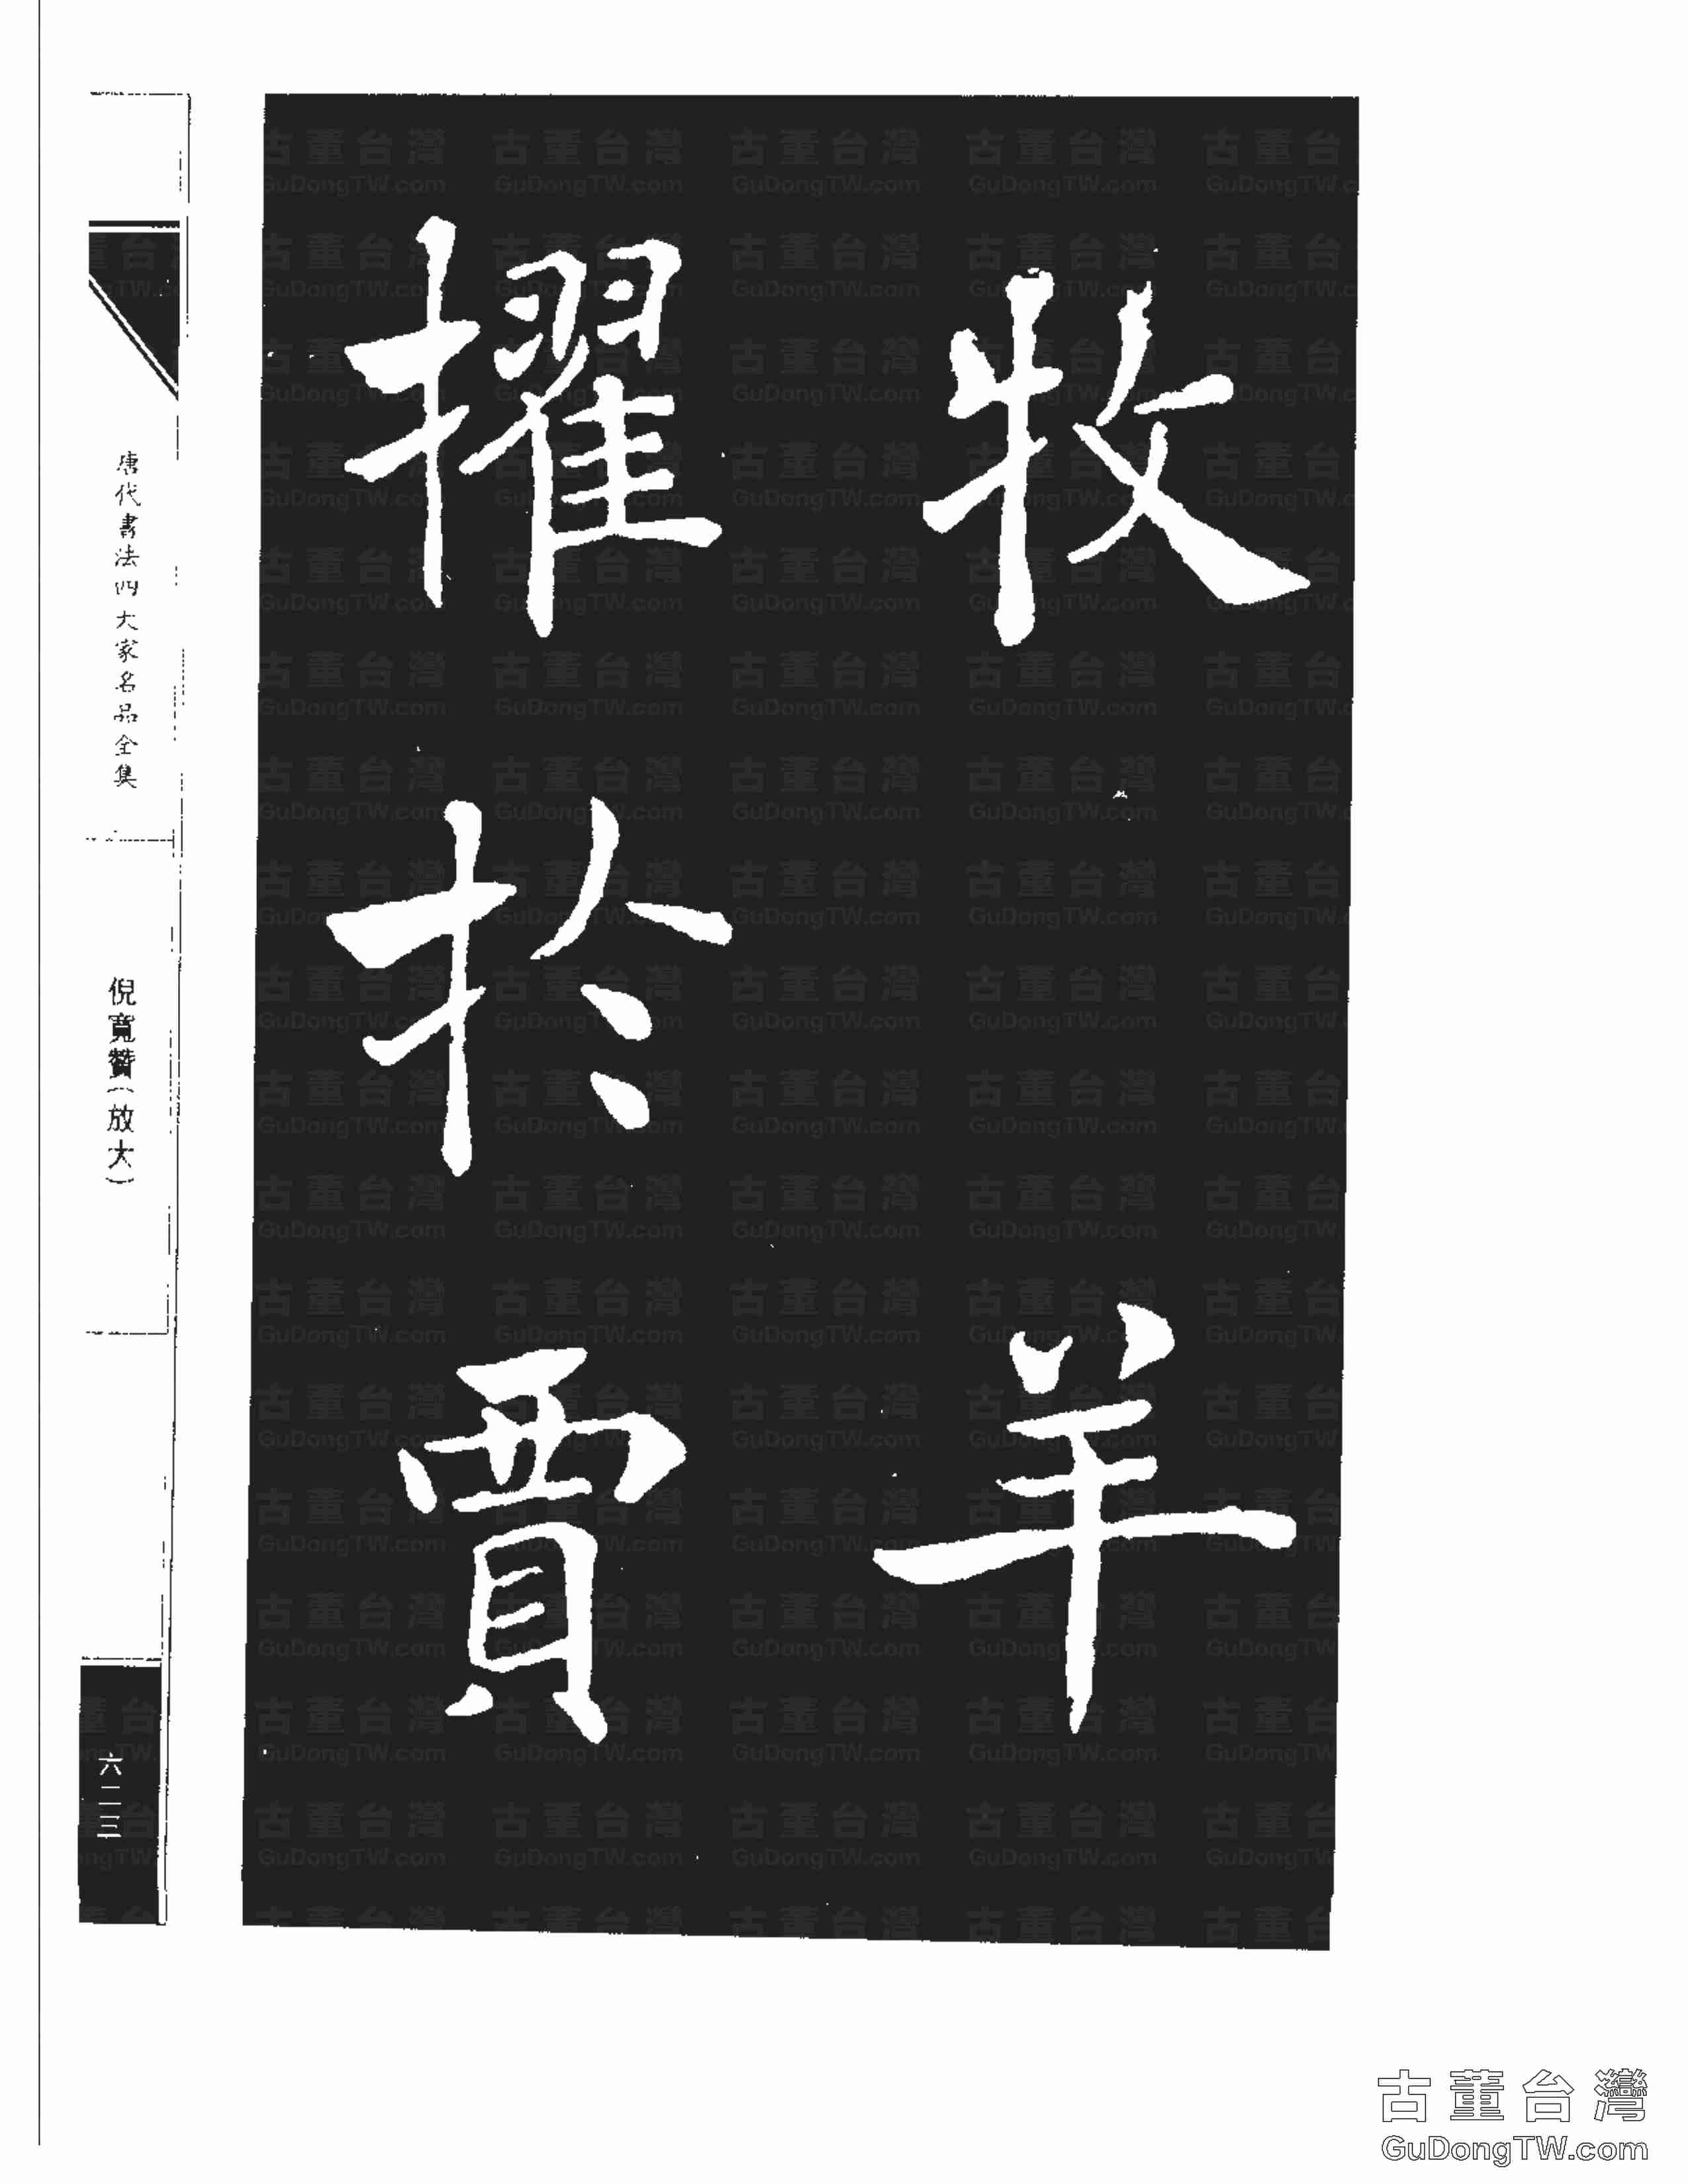 牧羊
擢於賈
唐代書法四大家名品全集
倪寬贊(放大)
六二三
古董台灣
GuDongTW.com